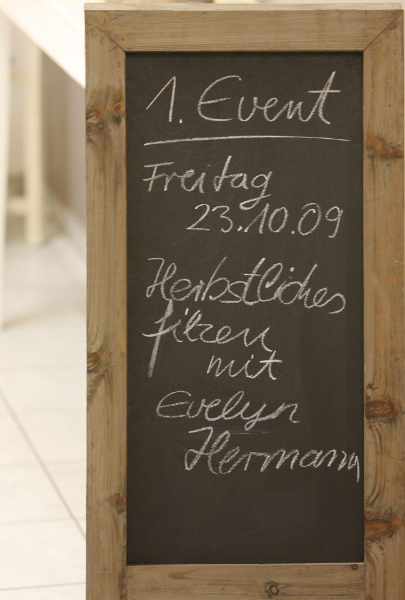 1. Event
Freitag
23.10.09
Herbstliches
filzen
mit
Evelyn
Hermann